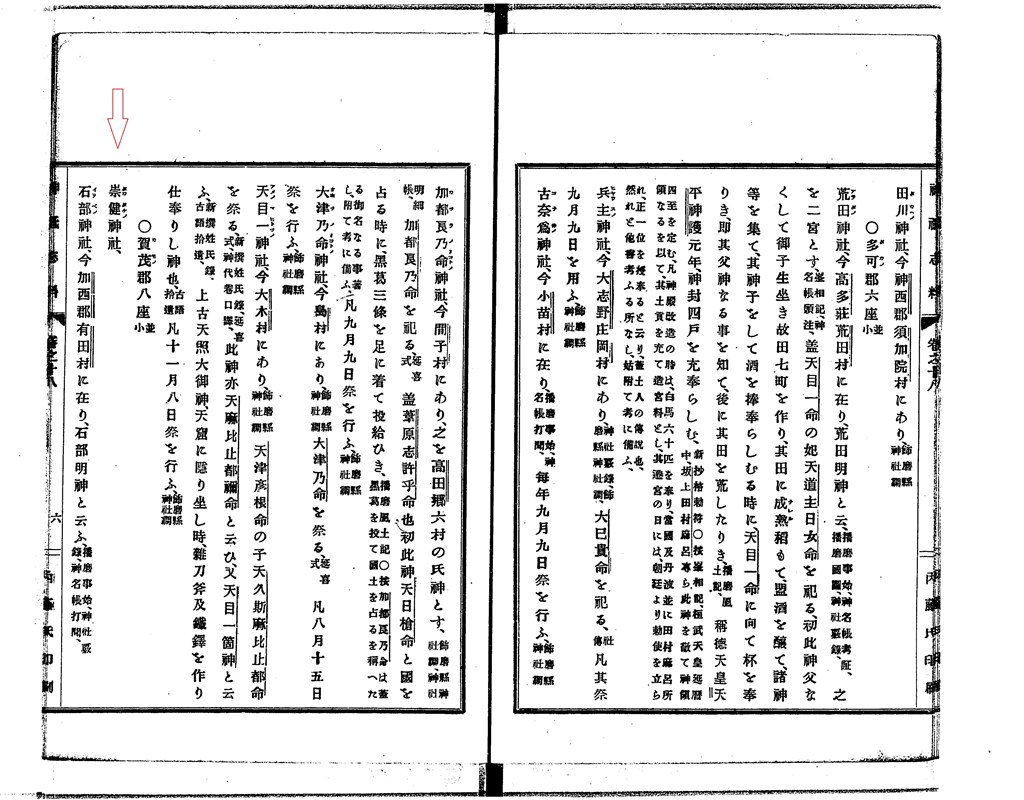 田川神社、今神西郡須加院村にあり、飾磨縣神社調
〇多可郡六座並小
荒田神社、今高多莊荒田村に在り、荒田明神と云、播磨事始、神名帳考証、播磨國圖、神社覈録、之
を二宮とす、峯相記、神名帳頭注、盖天目一命の妃天道主日女命を祀る、初此神父な
くして御子生坐き故田七町を作り、其田に成熟稻もて、盟酒を釀て、諸神
等を集て、其神子をして酒を捧奉らしむる時に、天目一命に向て杯を奉
りき、即其父神なる事を知て、後に其田を荒したりき、播磨風土記、稱德天皇天
平神護元年、神封四戸を充奉らしむ、新抄格勅符〇按峯相記、桓武天皇延曆中、坂上田村麻呂專ら此神を敬て神領
四至を定む、凡神殿改造の時は、白馬六十匹を奉り、當國及丹波並に田村麻呂所領なるを以て、其土貢を充て造宮料とし、其遷宮の日には、朝廷より勅使を立ら
れ、正一位を授奉ると云り、蓋土人の傳説也、然れと他書考ふる所なし、姑附て考に備ふ、
兵主神社、今大志野庄岡村にあり、神社覈錄、飾磨縣神社調、大已貴命を祀る、社傳凡其祭
九月九日を用ふ、飾磨縣神社調
古奈爲神社、今小苗村に在り、播磨事始、神名帳打聞、每年九月九日祭を行ふ、飾磨縣神社調
加都良乃命神社、今間子村にあり、之を高田鄕六村の氏神とす、飾磨縣神社調、神社
明細帳、加都良乃命を祀る、延喜式 盖葦原志許乎命也、初此神天日槍命と國を
占る時に黑葛三條を足に着て投給ひき、播磨風土記〇按加都良乃命は蓋黑葛を投て國土を占るを稱へた
る御名なる事著し、附て考に備ふ、凡九月九日祭を行ふ、飾磨縣神社調
大津乃命神社、今島村にあり、飾磨縣神社調大津乃命を祭る、延喜式 凡八月十五日
祭を行ふ、飾磨縣神社調
天目一神社、今大木村にあり、飾磨縣神社調 天津彦根命の子天久斯麻比止都命
を祭る、新撰姓氏錄、延喜式、神代卷口譯、此神亦天麻比止都禰命と云ひ、又天目一箇神と云
ふ、新撰姓氏錄、古語拾遺、上古天照大御神、天窟に隱り坐し時、雜刀斧及鐵鐸を作り
仕奉りし神也、古語拾遺 凡十一月八日祭を行ふ、飾磨縣神社調
〇賀茂郡八座並小
崇健神社、
石部神社、今加西郡有田村に在り、石部明神と云ふ、播磨事始、神社覈錄、神名帳打聞、
六